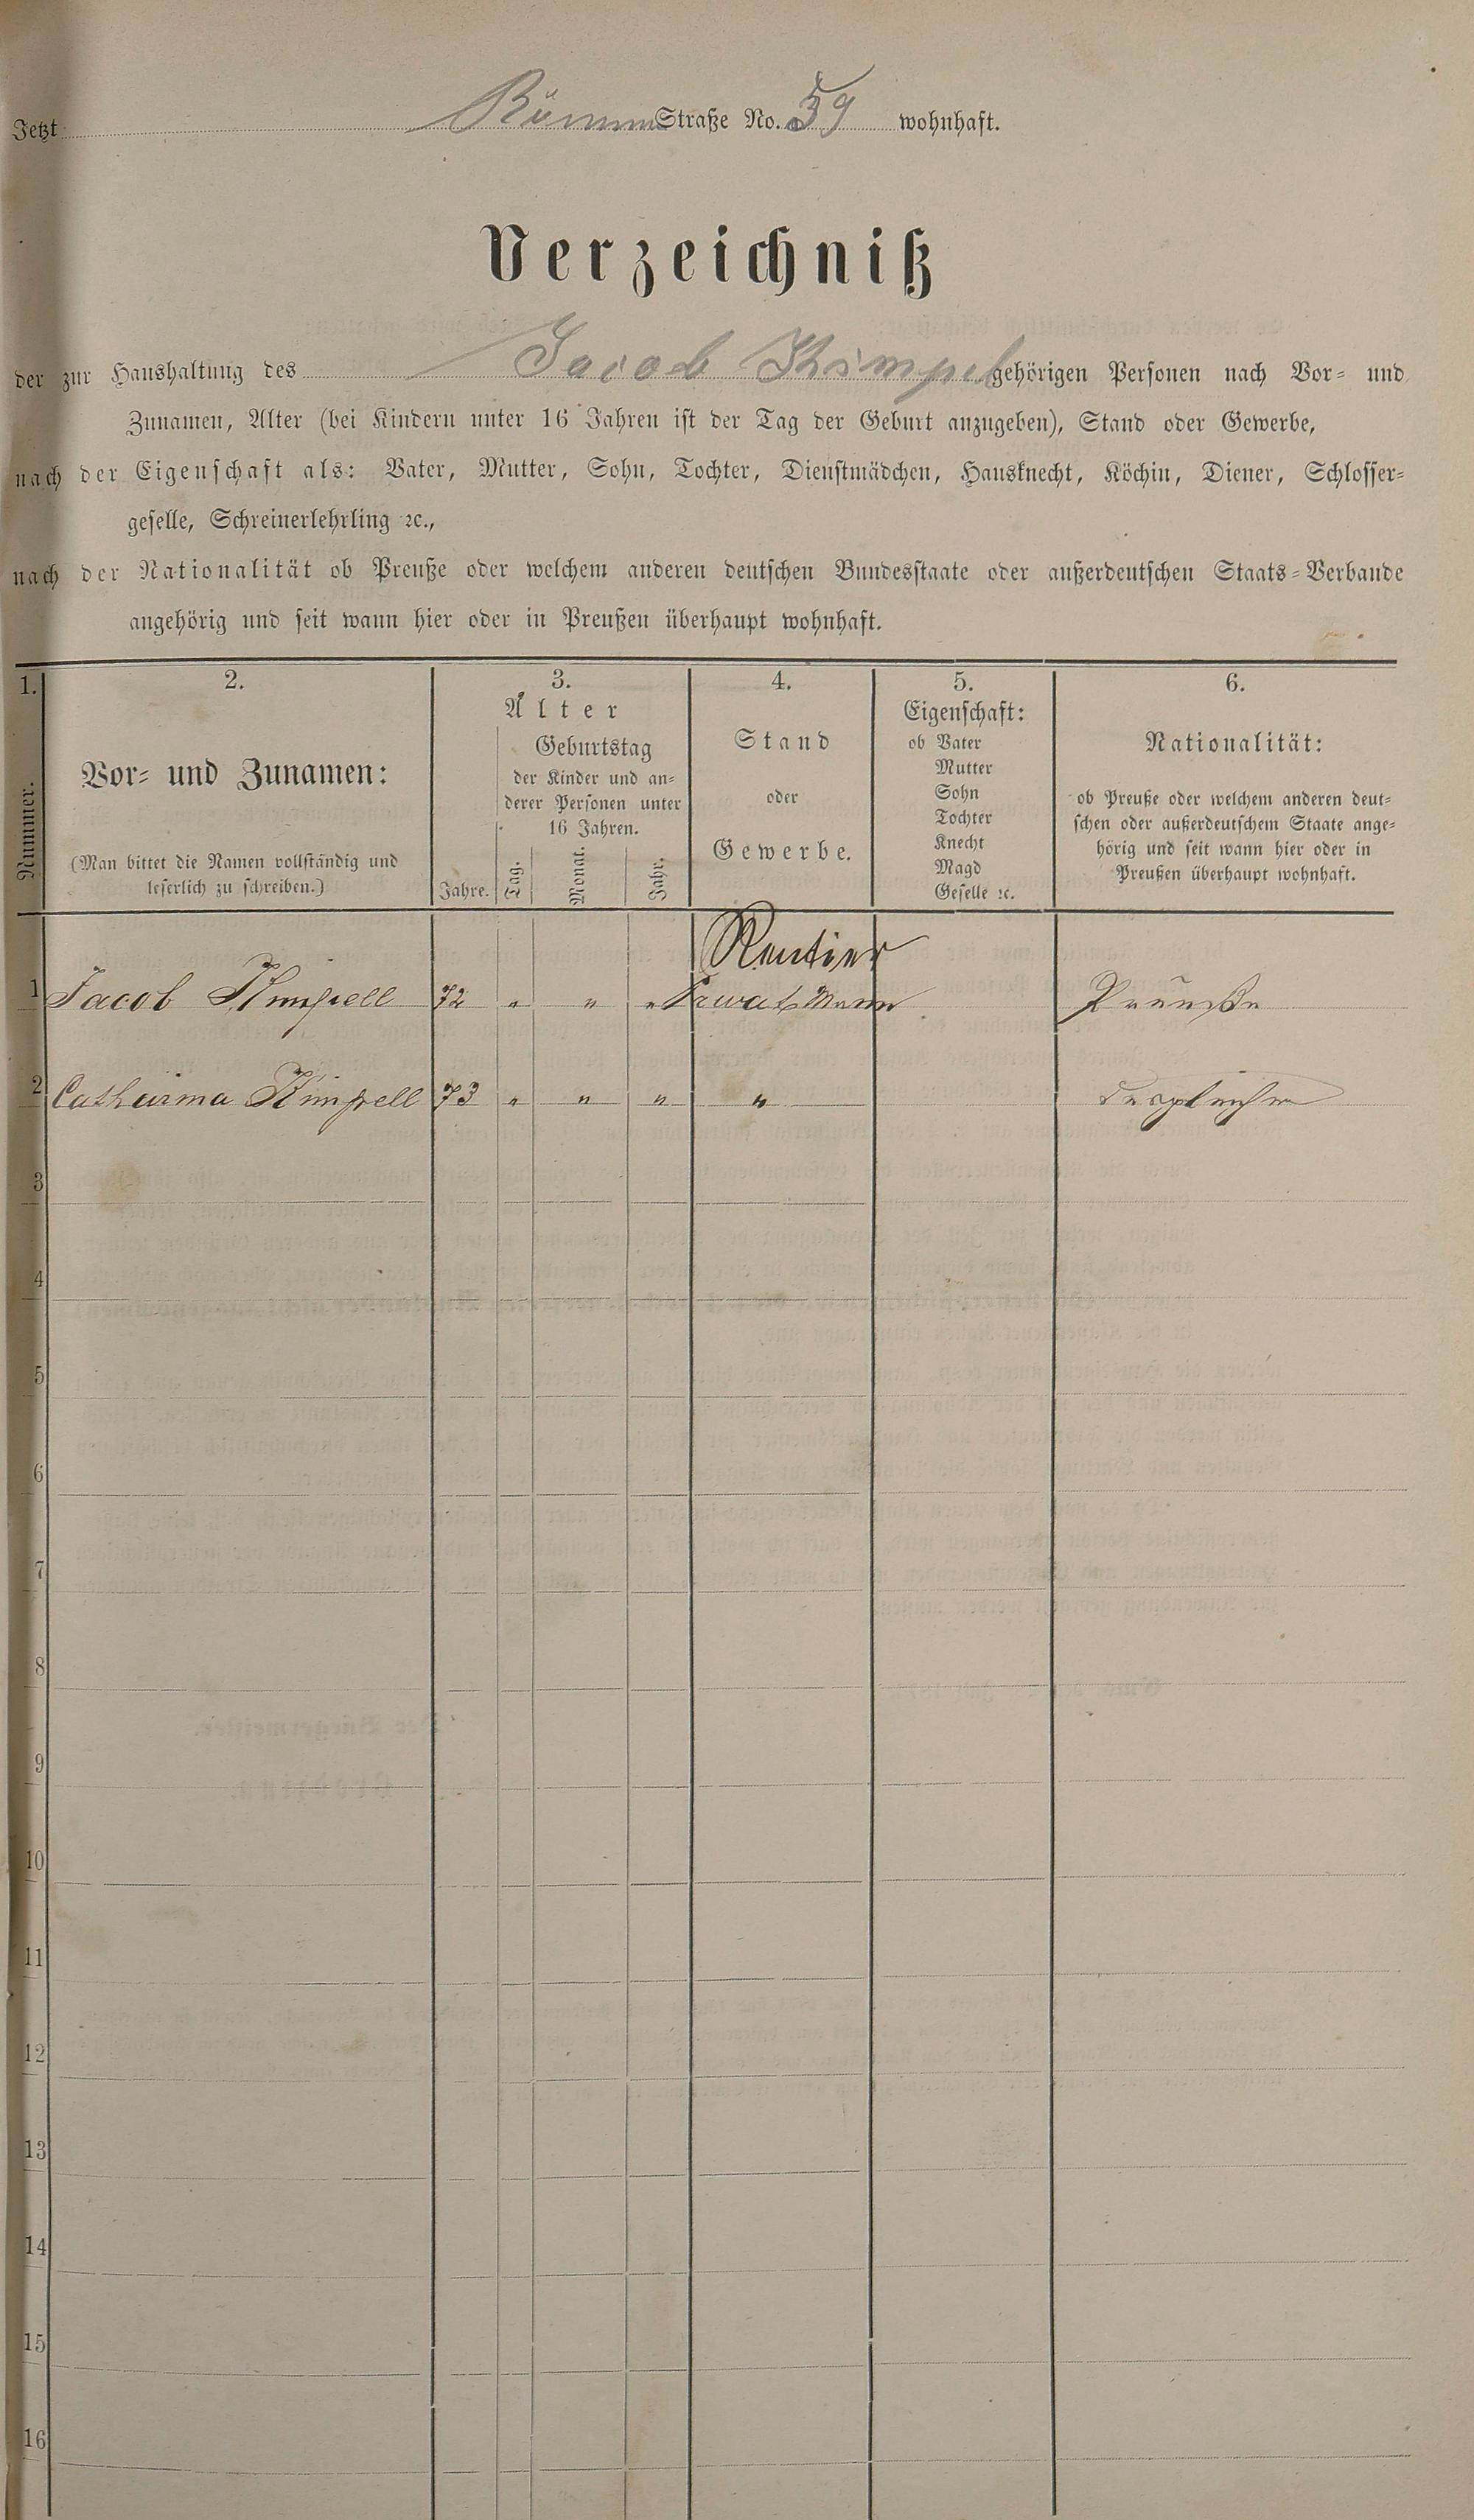 Jetzt Römer Straße No. 59 wohnhaft.
Verzeichniß
der zur Haushaltung des Jacob Kimpel gehörigen Personen nach Vor- und
Zunamen, Alter (bei Kindern unter 16 Jahren ist der Tag der Geburt anzugeben), Stand oder Gewerbe,
nach der Eigenschaft als: Vater, Mutter, Sohn, Tochter, Dienstmädchen, Hausknecht, Köchin, Diener, Schlosser-
geselle, Schreinerlehrling ꝛc.,
nach der Nationalität ob Preuße oder welchem anderen deutschen Bundesstaate oder außerdeutschen Staats-Verbande
angehörig und seit wann hier oder in Preußen überhaupt wohnhaft.
1.
Nummer.
2.
Vor- und Zunamen:
(Man bittet die Namen vollständig und
leserlich zu schreiben.)
3.
Alter
Geburtstag
der Kinder und an-
derer Personen unter
16 Jahren.
Jahre. Tag. Monat. Jahr.
4.
Stand
oder
Gewerbe.
5.
Eigenschaft:
ob Vater
Mutter
Sohn
Tochter
Knecht
Magd
Geselle ꝛc.
6.
Nationalität:
ob Preuße oder welchem anderen deut-
schen oder außerdeutschem Staate ange-
hörig und seit wann hier oder in
Preußen überhaupt wohnhaft.
Rentier
1 Jacob Kimpell 72 " " " Privat Mann Preuße
2 Catharina Kimpell 73 " " " " desgleichen
3
4
5
6
7
8
9
10
11
12
13
14
15
16